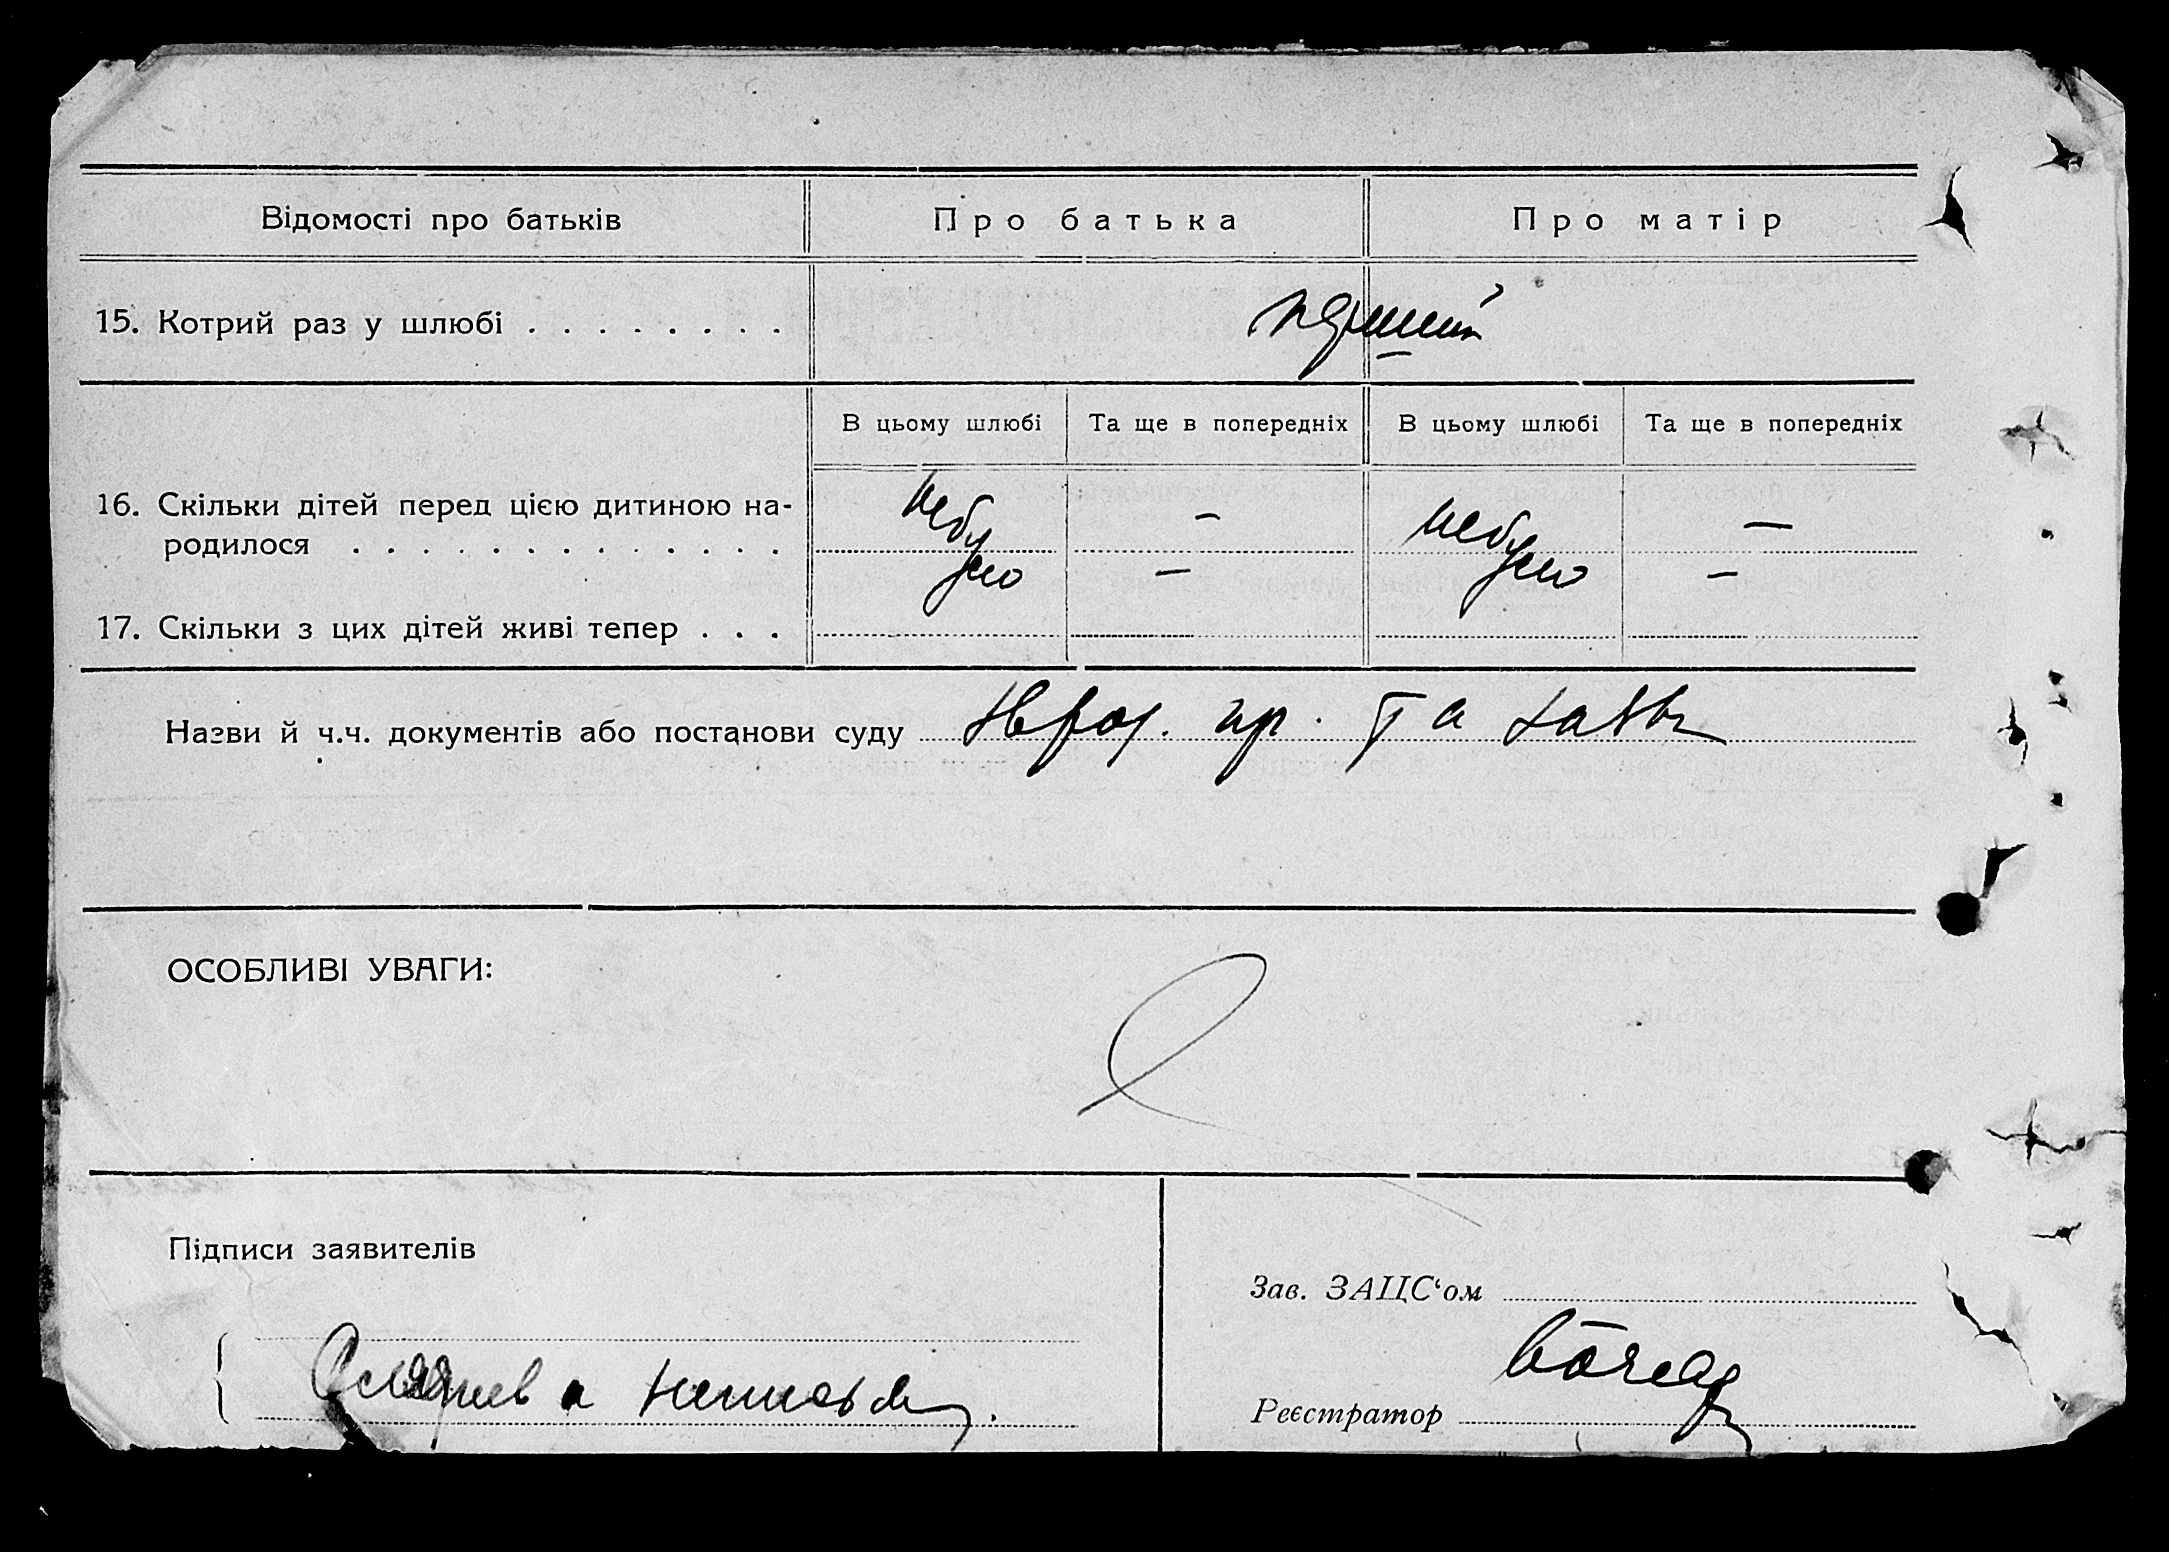 Відомості про батьків
Про батька
Про матір
15. Котрий раз у шлюбі . . . . . . . .
перший
В цьому шлюбі
Та ще в попередніх
В цьому шлюбі
Та ще в попередніх
16. Скільки дітей перед цією дитиною на-
родилося . . . . . . . . . . . . .
небу
—
небу
—
ло
—
ло
—
17. Скільки з цих дітей живі тепер . . .
Назви й ч.ч. документів або постанови суду
та
ОСОБЛИВІ УВАГИ:
Підписи заявителів
Зав. ЗАЦС‘ом
Реєстратор